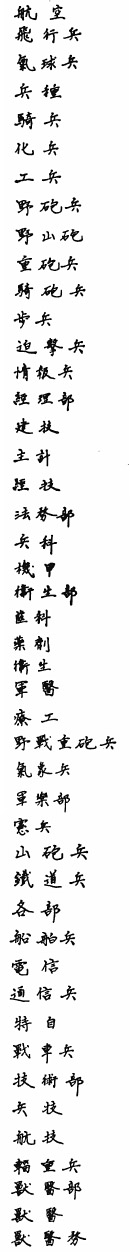 航空
飛行兵
氣球兵
兵種
騎兵
化兵
工兵
野砲兵
野山砲
重砲兵
騎砲兵
步兵
迫擊兵
情報兵
經理部
建技
主計
經技
法務部
兵科
機甲
衛生部
齒科
藥劑
衛生
軍醫
療工
野戰重砲兵
氣象兵
軍樂部
憲兵
山砲兵
鐵道兵
各部
船舶兵
電信
通信兵
特自
戰車兵
技術部
兵技
航技
輜重兵
獸醫部
獸醫
獸醫務